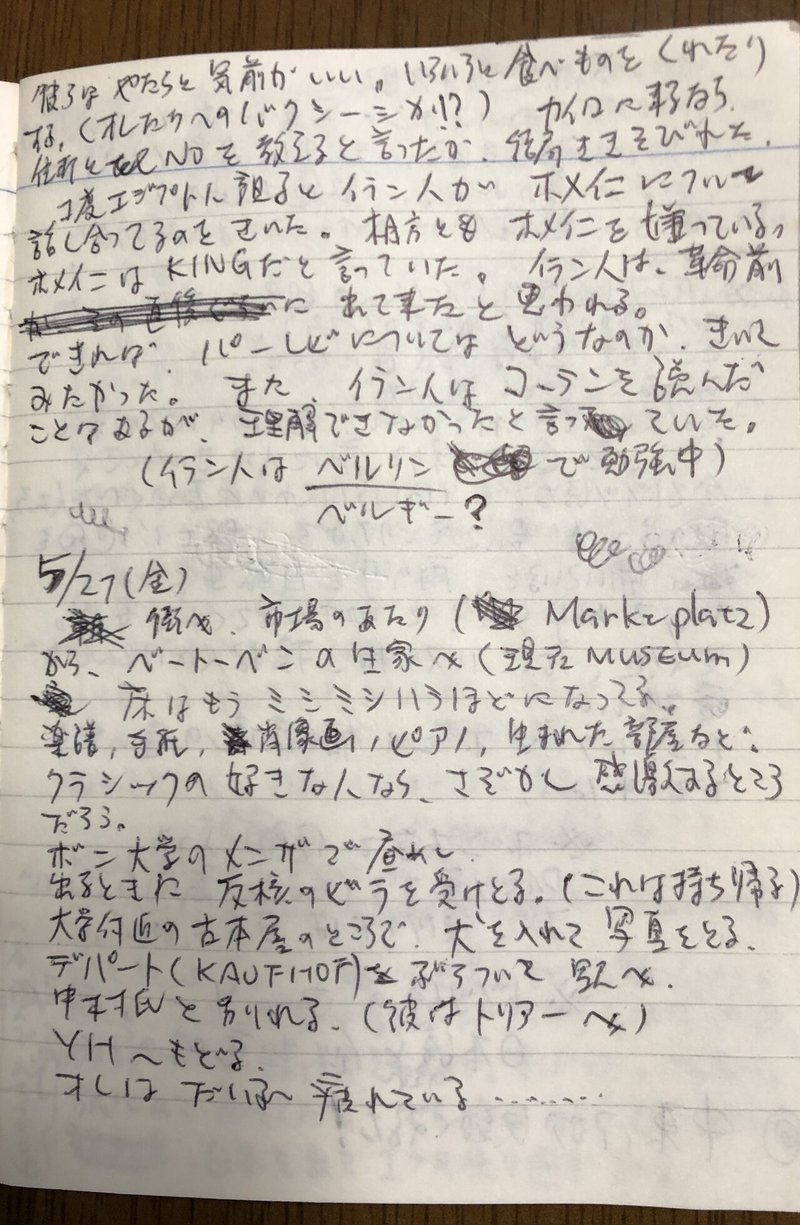 彼らはやたらと気前がいい。いろいろと食べものをくれたり
する。(オレたちへのバクシーシか!?) カイロに来るなら、
住所とTEL NOを教えると言ったが、結局ききそびれた。
一度エジプト人諸子とイラン人がホメイニについて
話し合ってるのをきいた。両方ともホメイニを嫌っている。
ホメイニはKINGだと言っていた。イラン人は、革命前
に出て来たと思われる。
できれば、パーレビについてはどうなのか、きいて
みたかった。また、イラン人はコーランを読んだ
ことはあるが、理解できなかったと言っていた。
(イラン人はベルリン で勉強中)
ベルギー?
5/27(金)
街へ、市場のあたり( Marktplatz)
から、ベートーベンの生家へ(現在MUSEUM)
床はもうミシミシいうほどになってる。
楽譜,手紙,肖像画,ピアノ,生まれた部屋など。
クラシックの好きな人なら、さぞかし感激するところ
だろう。
ボン大学のメンザで昼めし
出るときに反核のビラを受けとる。(これは持ち帰る)
大学付近の古本屋のところで、犬を入れて写真をとる。
デパート(KAUFHOF)をぶらついて駅へ。
中村氏と別れる。(彼はトリアーへ)
YHへもどる。
オレはだいぶ疲れている………